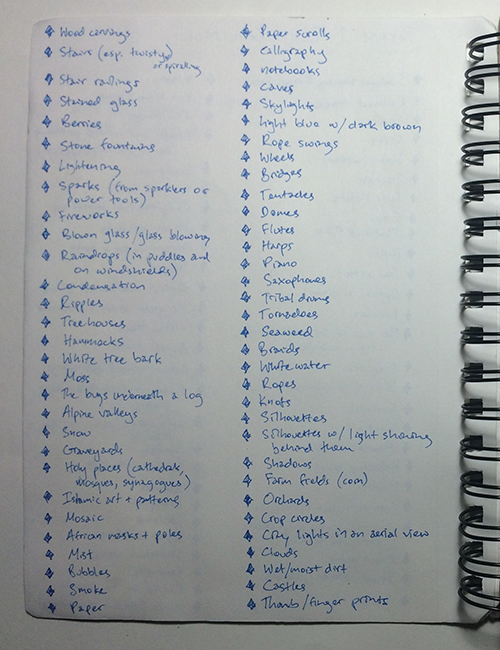 Wood carvings
Stairs (esp. twisty)
or spiraling
Stair railings
Stained glass
Berries
Stone fountains
Lightening
Sparks (from sparklers or
power tools)
Fireworks
Blown glass/glass blowing
Raindrops (in puddles and
on windshields)
Condensation
Ripples
Treehouses
Hammocks
White tree bark
Moss
The bugs underneath a log
Alpine valleys
Snow
Graveyards
Holy places (cathedrals,
mosques, synagogues)
Islamic art + patterning
Mosaic
African masks + poles
Mist
Bubbles
Smoke
Paper
Paper scrolls
Calligraphy
notebooks
Caves
Skylights
Light blue w/ dark brown
Rope swings
Wheels
Bridges
Tentacles
Domes
Flutes
Harps
Piano
Saxophones
Tribal drums
Tornadoes
Seaweed
Braids
Whitewater
Ropes
Knots
Silhouettes
Silhouettes w/ light showing
behind them
Shadows
Farm fields (corn)
Orchards
Crop circles
City lights in an aerial view
Clouds
Wet/moist dirt
Castles
Thumb/finger prints